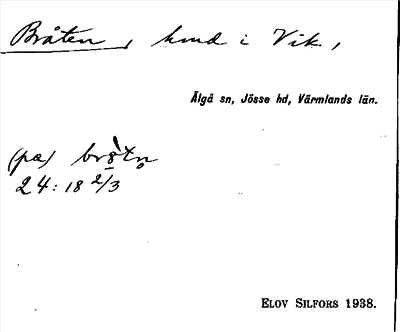 Bråten, hmd i Vik,
Älgå sn, Jösse hd, Värmlands län.
(pa) brɔ̀tn̥
24: 18 2/3
ELOV SILFORS 1938.